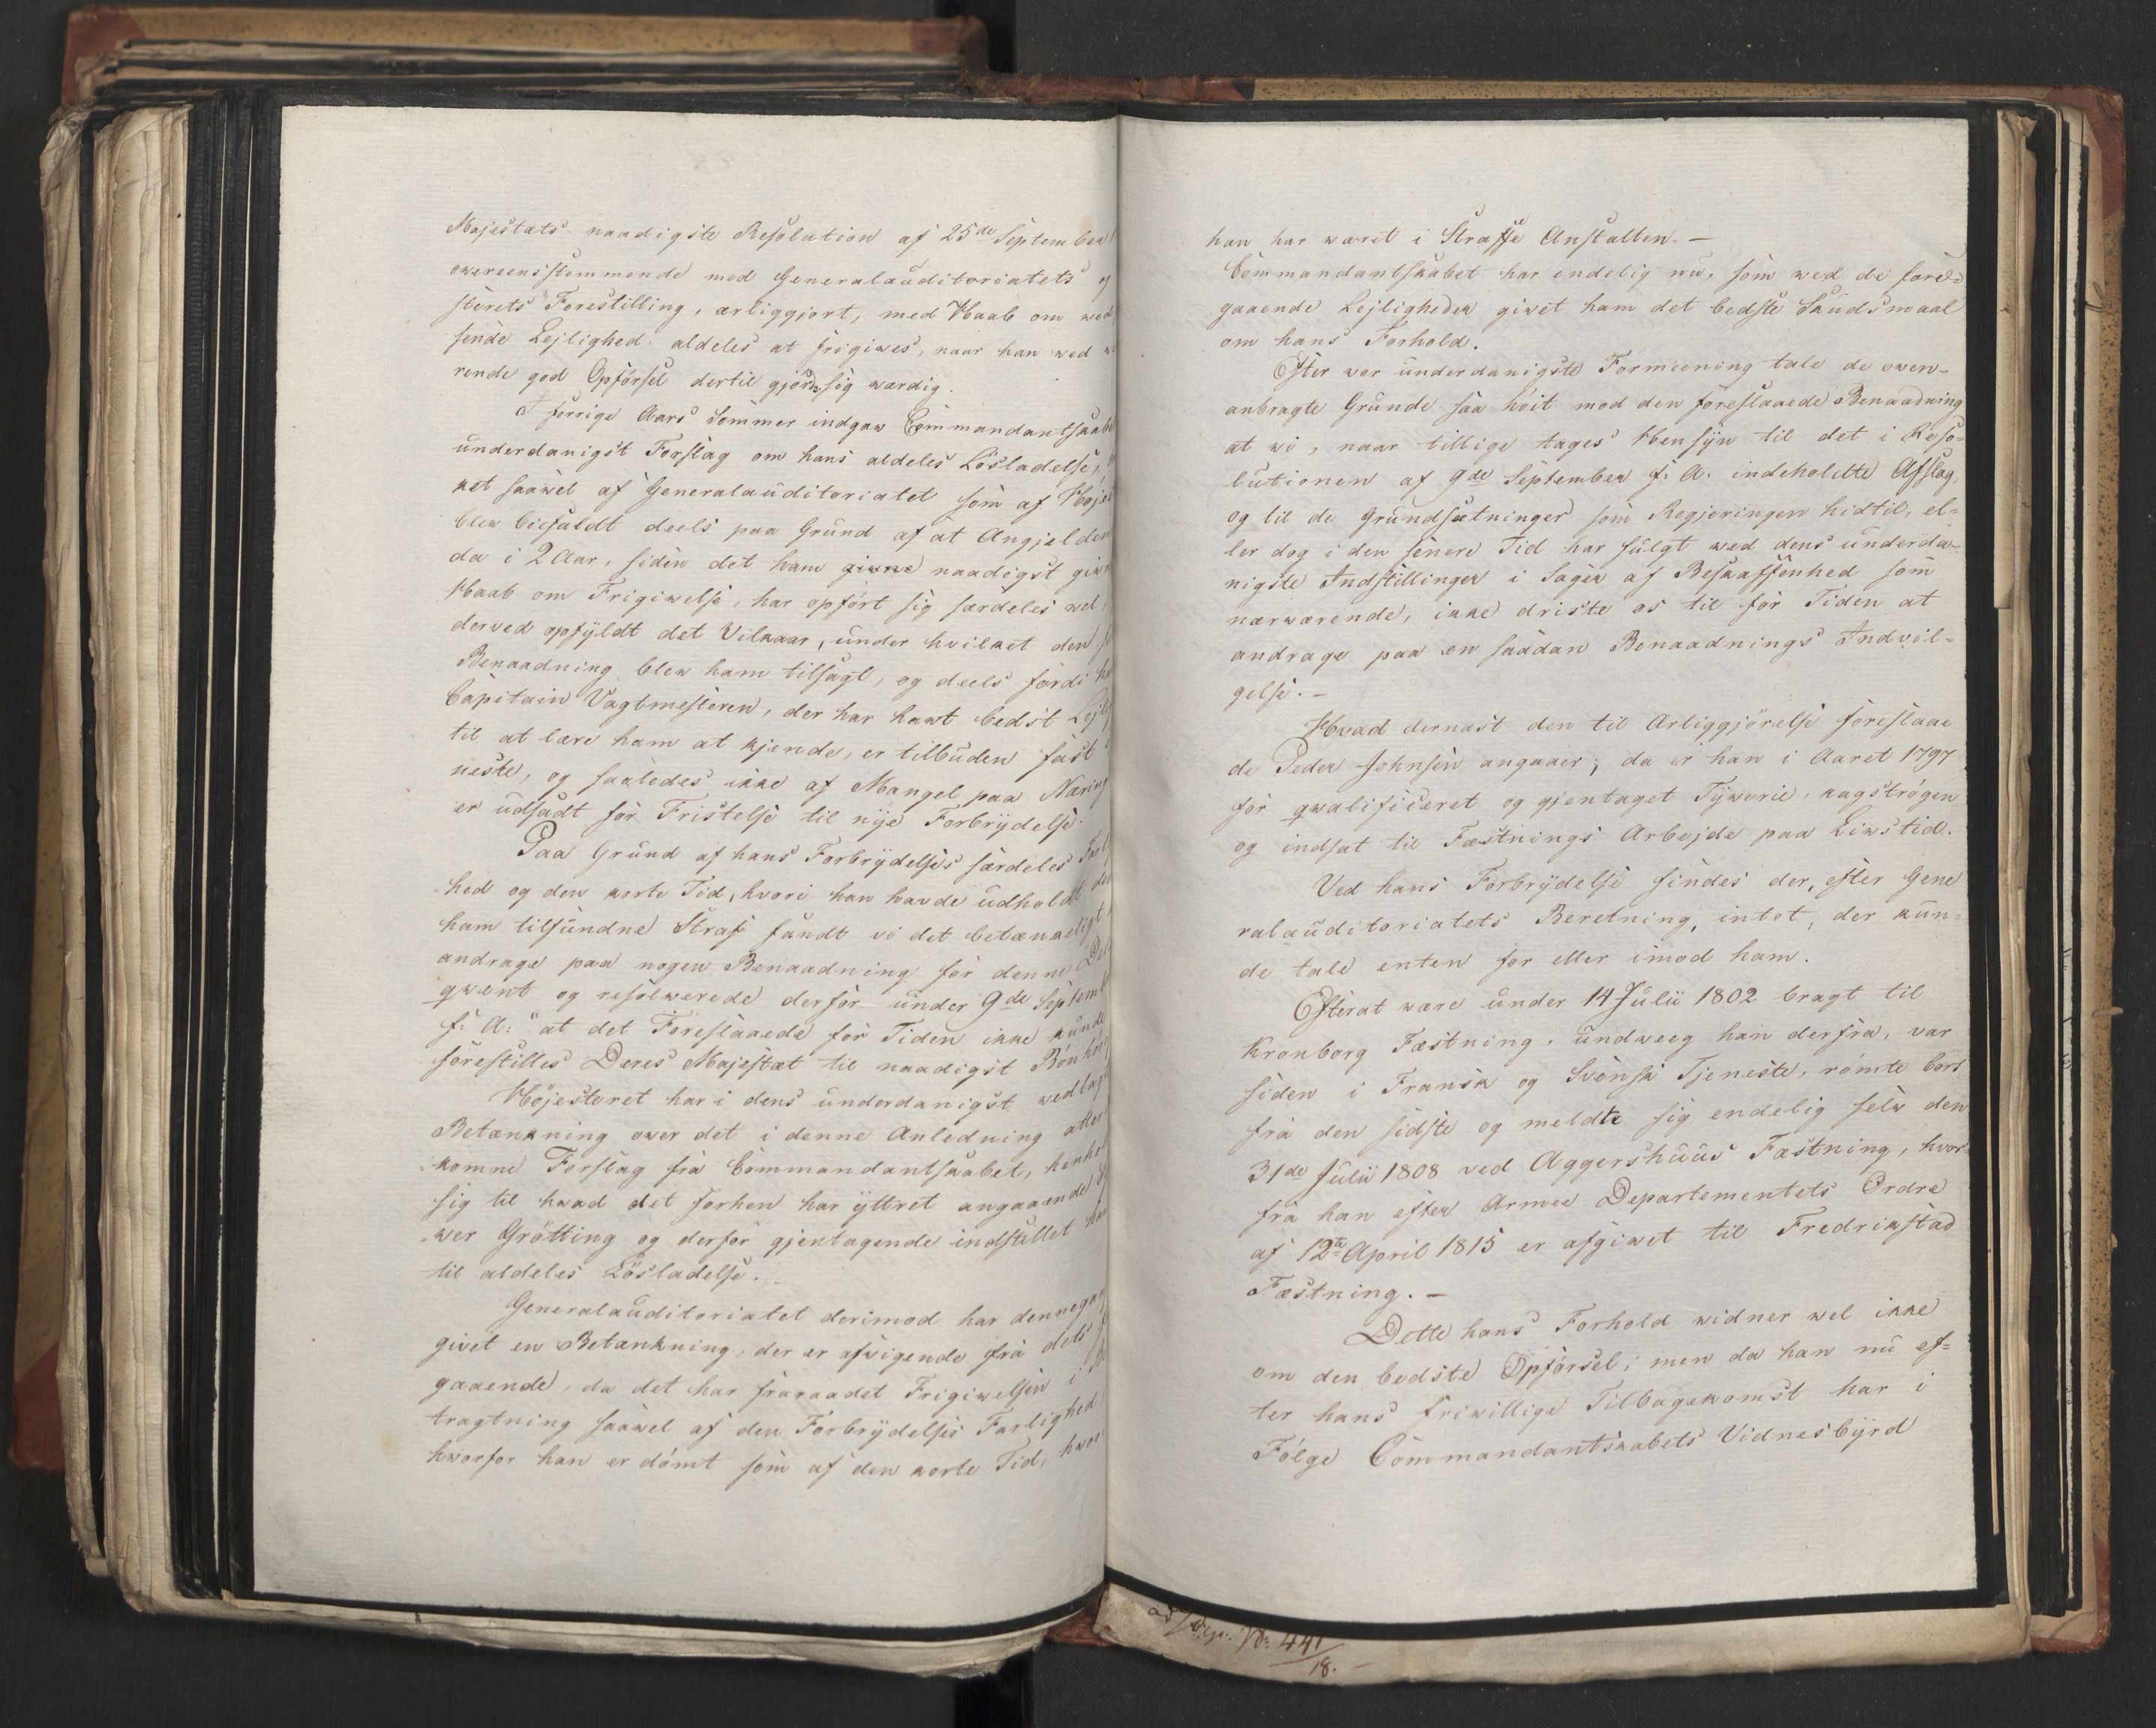 Majestæts naadigste Resolution af 25de September
overeensstemmende med Generalauditoriatets og
sterets Forestilling, ærliggjort, med Haab om ved
sende Lejlighed aldeles at frigives, naar han ved
rende god Opførsel dertil gjorde sig værdig.
I forrige Aars Sommer indgav Commandantskabe
underdanigst Forslag om hans aldeles Løsladelse,
ket saavel af Generalauditoriatet som af Høje
blev biefaldt deels paa Grund af at Angjelden
da i 2 Aar, siden det ham givne naadigst giv
Haab om Frigivelse, har opført sig særdeles vel,
derved opfyldt det Vilkaar, under hvilket den
Benaadning blev ham tilsagt, og deels fordi
Capitain Vagtmesteren, der har havt bedst Lejl
til at lære ham at kjende, er tilbuden fast
neste, og saaledes ikke af Mangel paa Næring
er udsadt for Fristelse til nye Forbrydelse.
Paa Grund af hans Forbrydelses særdeles Farl
hed og den korte Tid, hvori han havde udholdt den
ham tilfundne Straf fandt vi det betænkeligt
andrage paa nogen Benaadning for denne Del
qvent og resolverede derfor under 9de Septemb
f: A: "at det Foreslaaede for Tiden ikke kunde
forestilles Deres Majestæt til naadigst Bønhør
Højesteret har i dens underdanigst vedlagte
Betænkning over det i denne Anledning atter
komne Forslag fra Commandantskabet, henhol
sig til hvad det forhen har yttret angaaende
ver Grøtting og derfor gjentagende indstillet ham
til aldeles Løsladelse.
Generalauditoriatet derimod har dennegang
givet en Betænkning, der er afvigende fra dets
gaaende, da det har fraraadet Frigivelsen i
tragtning saavel af den Forbrydelses Farlighed
hvorfor han er dømt som af den korte Tid, hvor
han har været i Straffe Anstalten. –
Commandantskabet har endelig nu, som ved de fore=
gaaende Lejligheder givet ham det bedste Skudsmaal
om hans Forhold.
Efter vor underdanigste Formeening tale de oven=
anbragte Grunde saa høit mod den foreslaaede Benaadning
at vi, naar tillige tages Hensyn til det i Reso=
lutionen af 9de September f: A: indeholdte Afslag,
og til de Grundsætninger som Regjeringen hidtil, el=
ler dog i den senere Tid har fulgt ved dens underda=
nigste Indstillinger i Sager af Beskaffenhed som
nærværende, ikke driste os til for Tiden at
andrage paa en saadan Benaadnings Indvil=
gelse. –
Hvad dernæst den til Ærliggjørelse foreslaae
de Peder Johnsen angaaer; da er han i Aaret 1797
for qvalificeret og gjentaget Tyverie, kagstrøgen
og indsat til Fæstnings Arbejde paa Livstid.
Ved hans Forbrydelse findes der, efter Gene
ralauditoriatets Beretning, intet, der kun=
de tale enten for eller imod ham.
Efterat være under 14 Julii 1802 bragt til
Kronborg Fæstning, undveeg han derfra, var
siden i Fransk og Svensk Tjeneste, rømte bort
fra den sidste og meldte sig endelig selv den
31de Julii 1808 ved Aggershuus Fæstning, hvor=
fra han efter Armee Departementets Ordre
af 12te April 1815 er afgivet til Fredrikstad
Fæstning. –
Dette hans Forhold vidner vel ikke
om den bedste Opførsel; men da han nu ef=
ter hans frivillige Tilbagekomst har i
Følge Commandantskabets Vidnesbyrd
No 441
18. –